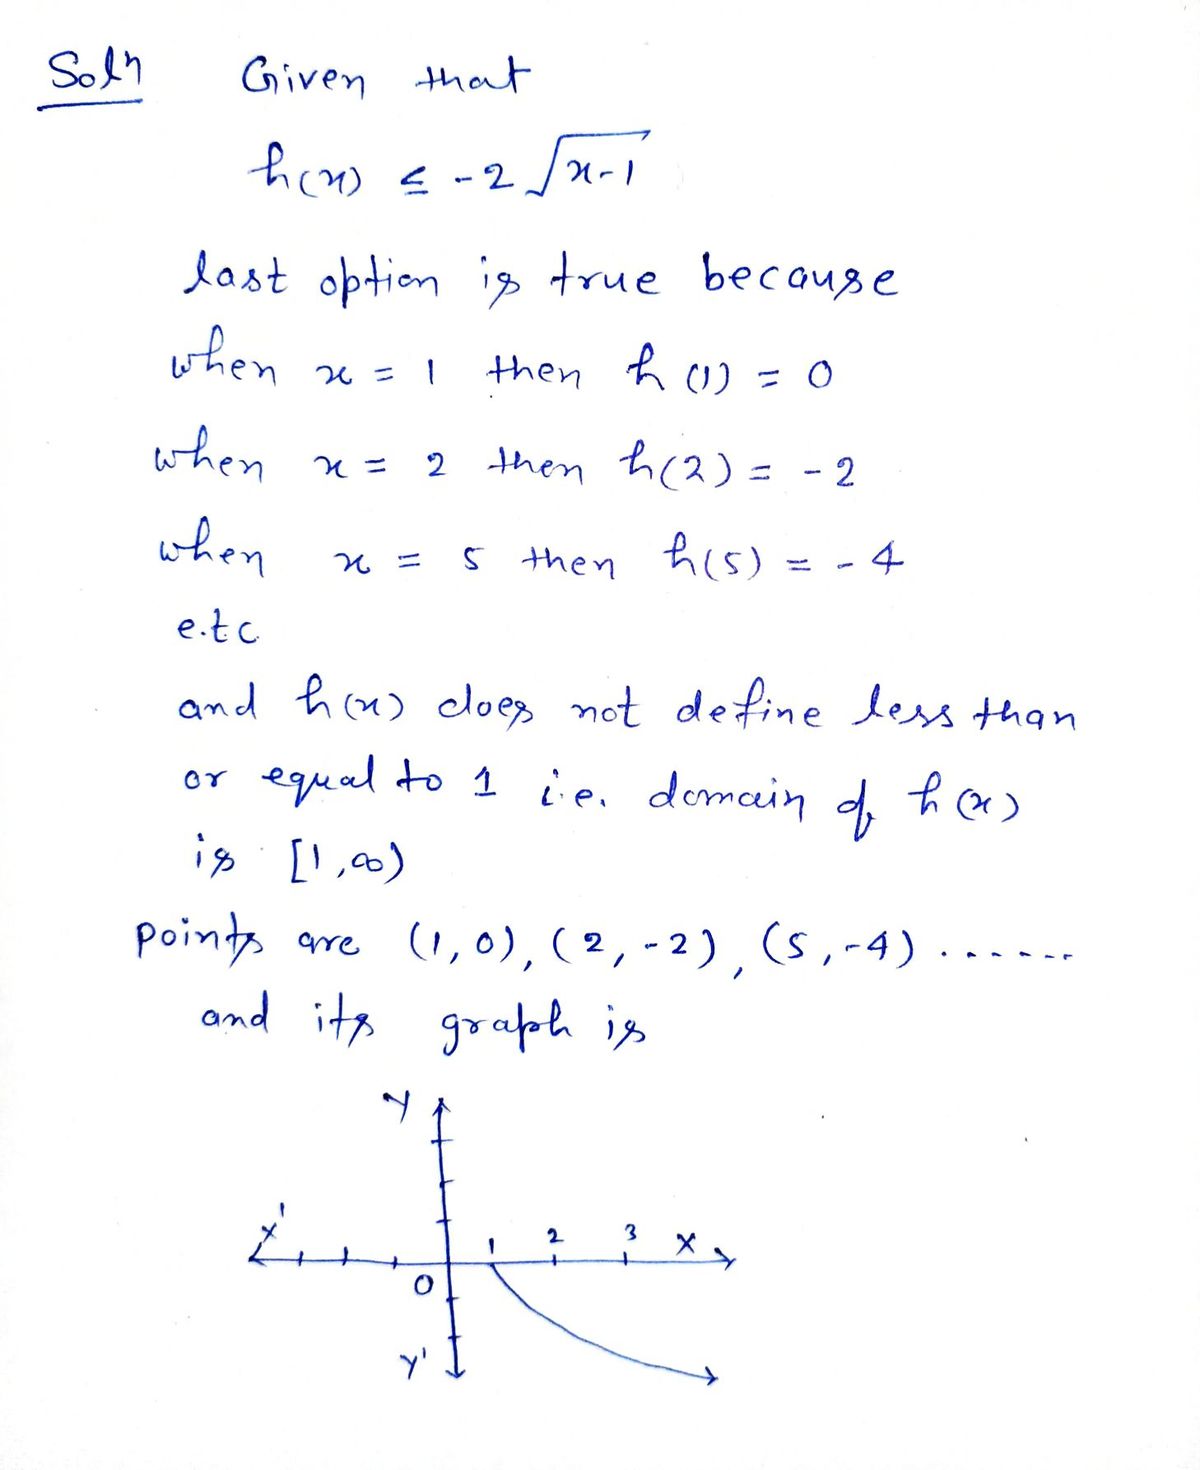 Soln Given that
h(x) ≤ -2 √x-1
last option is true because
when x = 1 then h(1) = 0
when x = 2 then h(2) = -2
when x = 5 then h(5) = -4
e.t.c
and h(x) does not define less than
or equal to 1 i.e. domain of h(x)
is [1,∞)
points are (1,0), (2,-2), (5,-4) ......
and its graph is
Y
X' 1 2 3 X
O
Y'